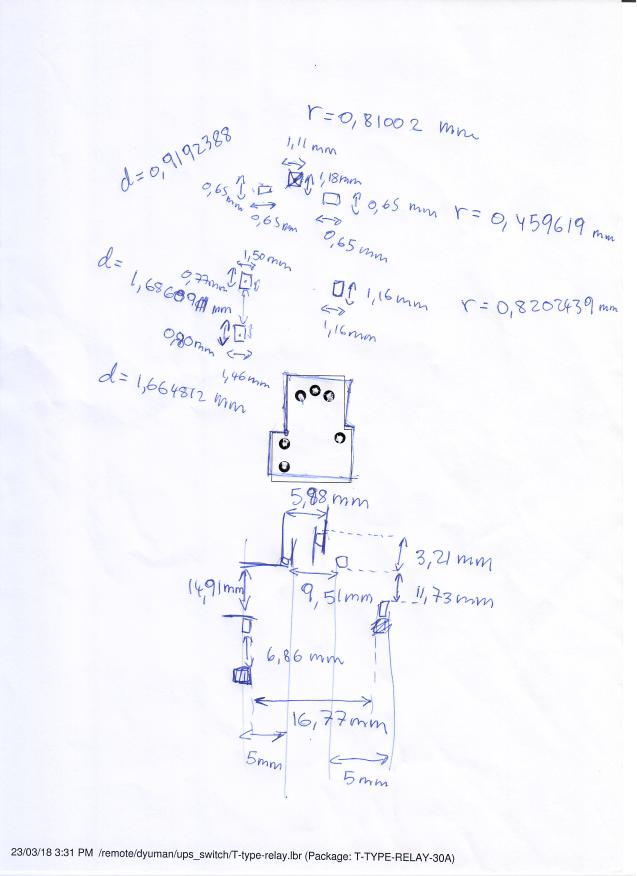 r=0,81002 mm
d=0,9192388
1,11mm
1,18mm
0,65mm
0,65mm
0,65 mm
r=0,459619 mm
0,65mm
1,50mm
d=
0,77mm
1,16mm
r=0,8202439 mm
1,16mm
0,80mm
1,46mm
d=1,664812 mm
5,98mm
3,21mm
14,91mm
9,51mm
11,73mm
6,86 mm
16,77mm
5mm
5mm
23/03/18 3:31 PM /remote/dyuman/ups_switch/T-type-relay.lbr (Package: T-TYPE-RELAY-30A)